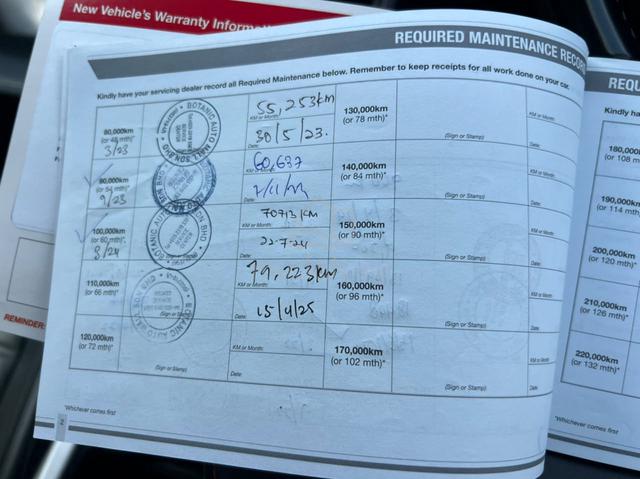 New Vehicle's Warranty
REQUIRED MAINTENANCE RECO
Kindly have your servicing dealer record all Required Maintenance below. Remember to keep receipts for all work done on your car.
80,000km
(or 48 mth)*
3/23
BOTANIC AUTO MALL SDN BHD
55,253km
KM or Month:
30/5/23.
Date:
130,000km
(or 78 mth)*
(Sign or Stamp)
KM or Month:
Date:
(or 54 mth)*
9/23
60,637
KM or Month:
Date:
140,000km
(or 84 mth)*
(Sign or Stamp)
KM or Month:
Date:
100,000km
(or 60 mth)*
3/24
70713 KM
KM or Month:
22-7-24
Date:
150,000km
(or 90 mth)*
(Sign or Stamp)
KM or Month:
Date:
110,000km
(or 66 mth)*
BOTANIC AUTO MALL SDN BHD
79,223km
KM or Month:
15/4/25
Date:
160,000km
(or 96 mth)*
(Sign or Stamp)
KM or Month:
Date:
120,000km
(or 72 mth)*
KM or Month:
Date:
170,000km
(or 102 mth)*
(Sign or Stamp)
KM or Month:
Date:
*Whichever comes first
2
REMINDER:
REQU
Kindly ha
180,000
(or 108 m
190,000k
(or 114 mth
200,000k
(or 120 mth)
210,000km
(or 126 mth)*
220,000km
(or 132 mth)*
*Whichever comes first